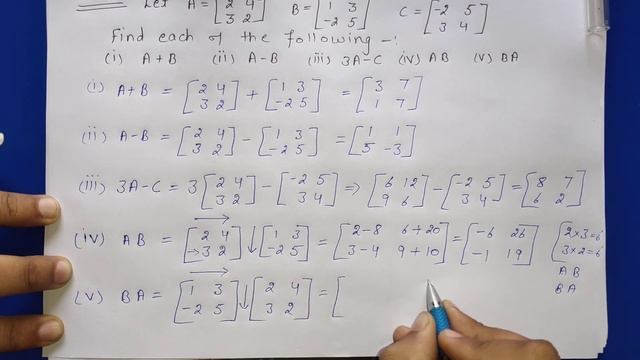 Let A = [2 4 3 2] B = [1 3 -2 5] C = [-2 5 3 4]
Find each of the following :-
(i) A+B (ii) A-B (iii) 3A-C (iv) AB (v) BA
(i) A+B = [2 4 3 2] + [1 3 -2 5] = [3 7 1 7]
(ii) A-B = [2 4 3 2] - [1 3 -2 5] = [1 1 5 -3]
(iii) 3A-C = 3[2 4 3 2] - [-2 5 3 4] ⇒ [6 12 9 6] - [-2 5 3 4] = [8 7 6 2]
(iv) AB = [2 4 →3 2]↓[1 3 -2 5] = [2-8 6+20 3-4 9+10] = [-6 26 -1 19] [2×3=6 3×2=6
AB
BA
(v) BA = [1 3 -2 5]↓[2 4 3 2] = [